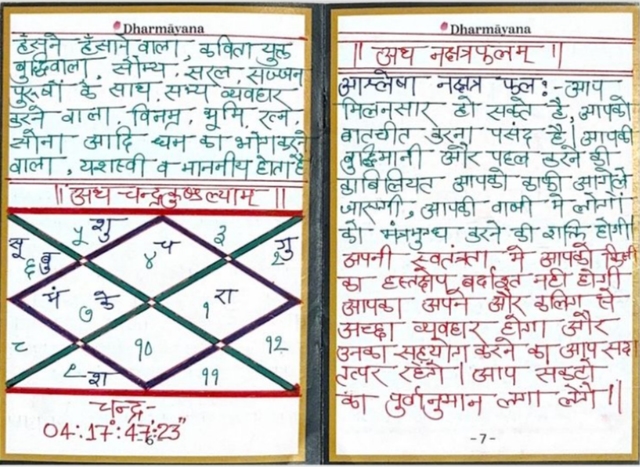 Dharmāyana
हँसने हँसाने वाला, कविता युक्त
बुद्धिवाला, सौम्य, सरल, सज्जन
पुरूषों के साथ, सभ्य व्यवहार
करने वाला, विनम्र, भूमि, रत्न,
सोना आदि धन का भोग करने
वाला, यशस्वी व माननीय होता है
|| अथ चन्द्रकुण्डल्याम् ||
सू ५ शु ३ गु
६ बु ४ च २
मं ७ के १ रा
८ १० १२
९ श ११
चन्द्र-
04:17:47:23"
-6-
Dharmāyana
|| अथ नक्षत्रफलम् ||
आश्लेषा नक्षत्र फल:- आप
मिलनसार हो सकते है, आपको
बातचीत करना पसंद है| आपकी
बुद्धिमानी और पहल करने की
काबिलियत आपको काफी आगे ले
जाएगी, आपकी वाणी में लोगों
को मंत्रमुग्ध करने की शक्ति होगी
अपनी स्वतंत्रता में आपको किसी
का हस्तक्षेप बर्दाश्त नही होगी
आपका अपने और कलिग से
अच्छा व्यवहार होगा और
उनका सहयोग करने का आप सदा
तत्पर रहेंगे| आप संकटो
का पुर्वानुमान लगा लेंगे||
-7-